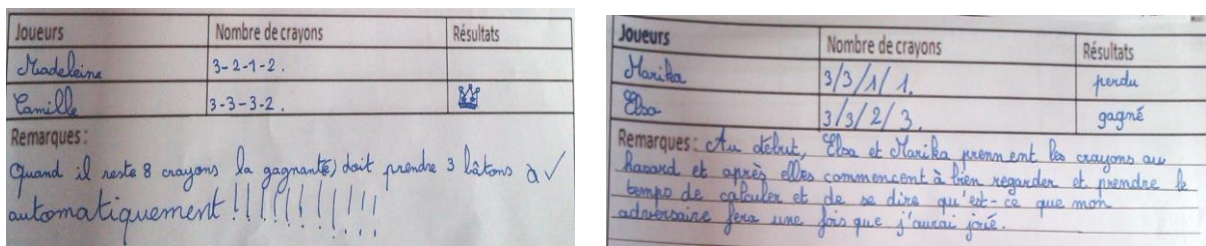 Joueurs Nombre de crayons Résultats
Madeleine 3-2-1-2.
Camille 3-3-3-2.
Remarques :
Quand il reste 8 crayons la gagnante) doit prendre 3 bâtons à
automatiquement !!!!!!!!!!!
Joueurs Nombre de crayons Résultats
Marika 3/3/1/1. perdu
Elsa 3/3/2/3. gagné
Remarques : Au début, Elsa et Marika prennent les crayons au
hasard et après elles commencent à bien regarder et prendre le
temps de calculer et de se dire qu'est-ce que mon
adversaire fera une fois que j'aurai joué.